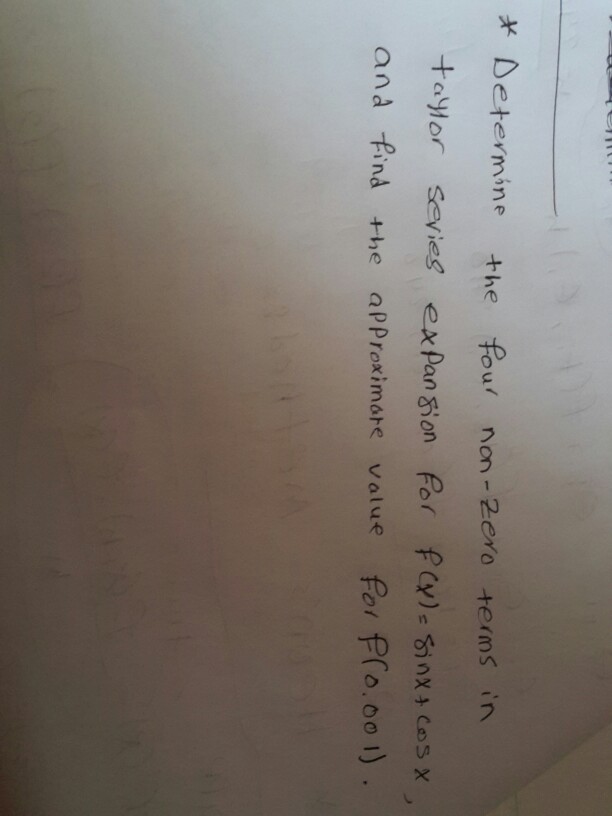 * Determine the four non-zero terms in
taylor series expansion for f(x) = sinx + cosx,
and find the approximate value for f(0.001).